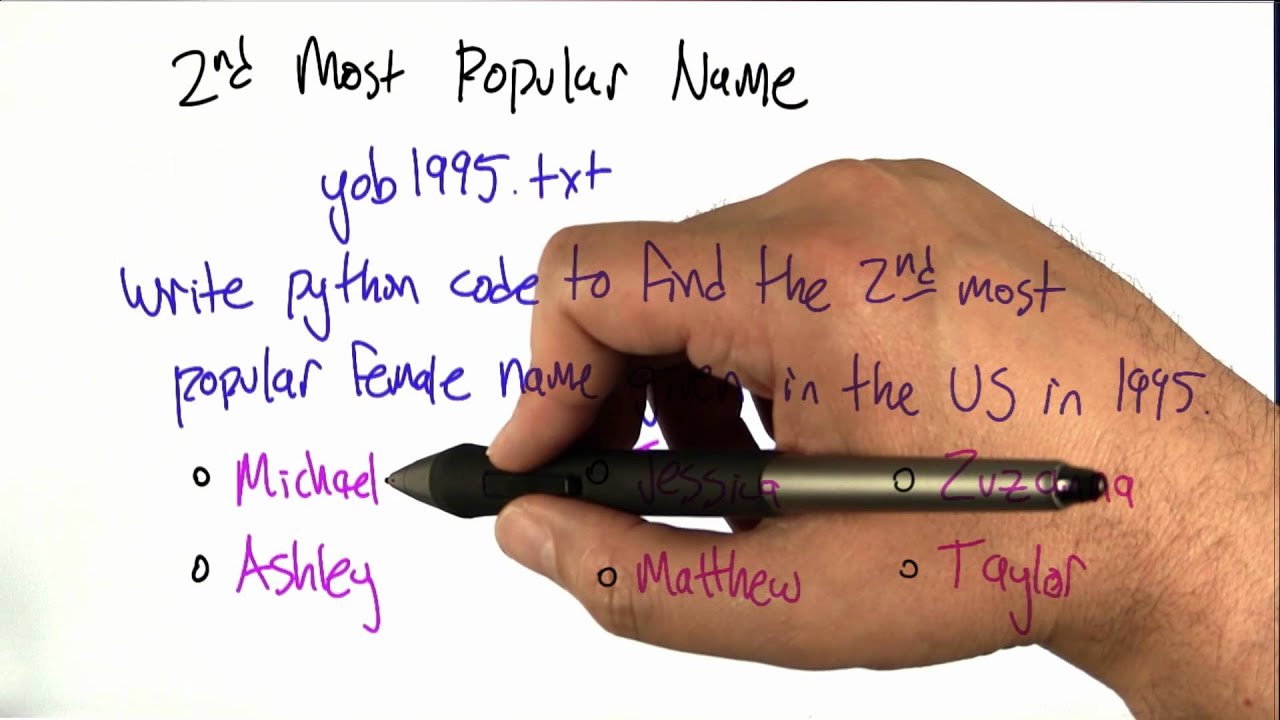 2nd Most Popular Name
yob1995.txt
Write python code to find the 2nd most
popular female name given in the US in 1995.
Michael Jessica Zuzanna
Ashley Matthew Taylor